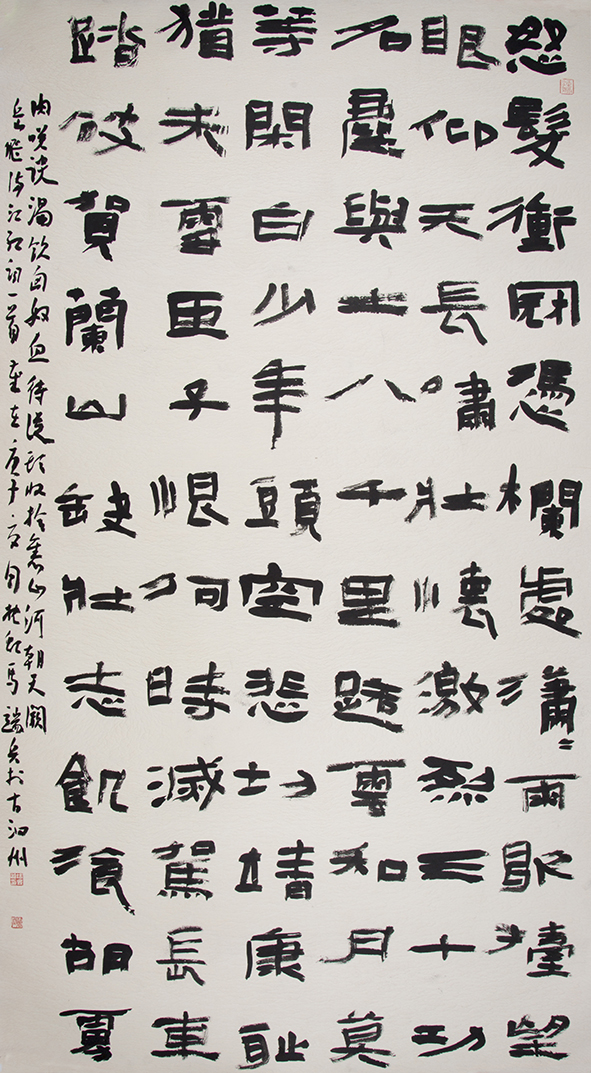 怒髮衝冠憑欄處瀟〻雨歇擡望
眼仰天長嘯壯懷激烈三十功
名塵與土八千里路雲和月莫
等閑白少年頭空悲切靖康恥
猶未雪臣子恨何時滅駕長車
踏破賀蘭山缺壯志飢湌胡虜
肉咲談渴飲匈奴血待從頭收拾舊山河朝天闕
岳飛滿江紅詞一首歲在庚子夏月馬端兵於古泗州